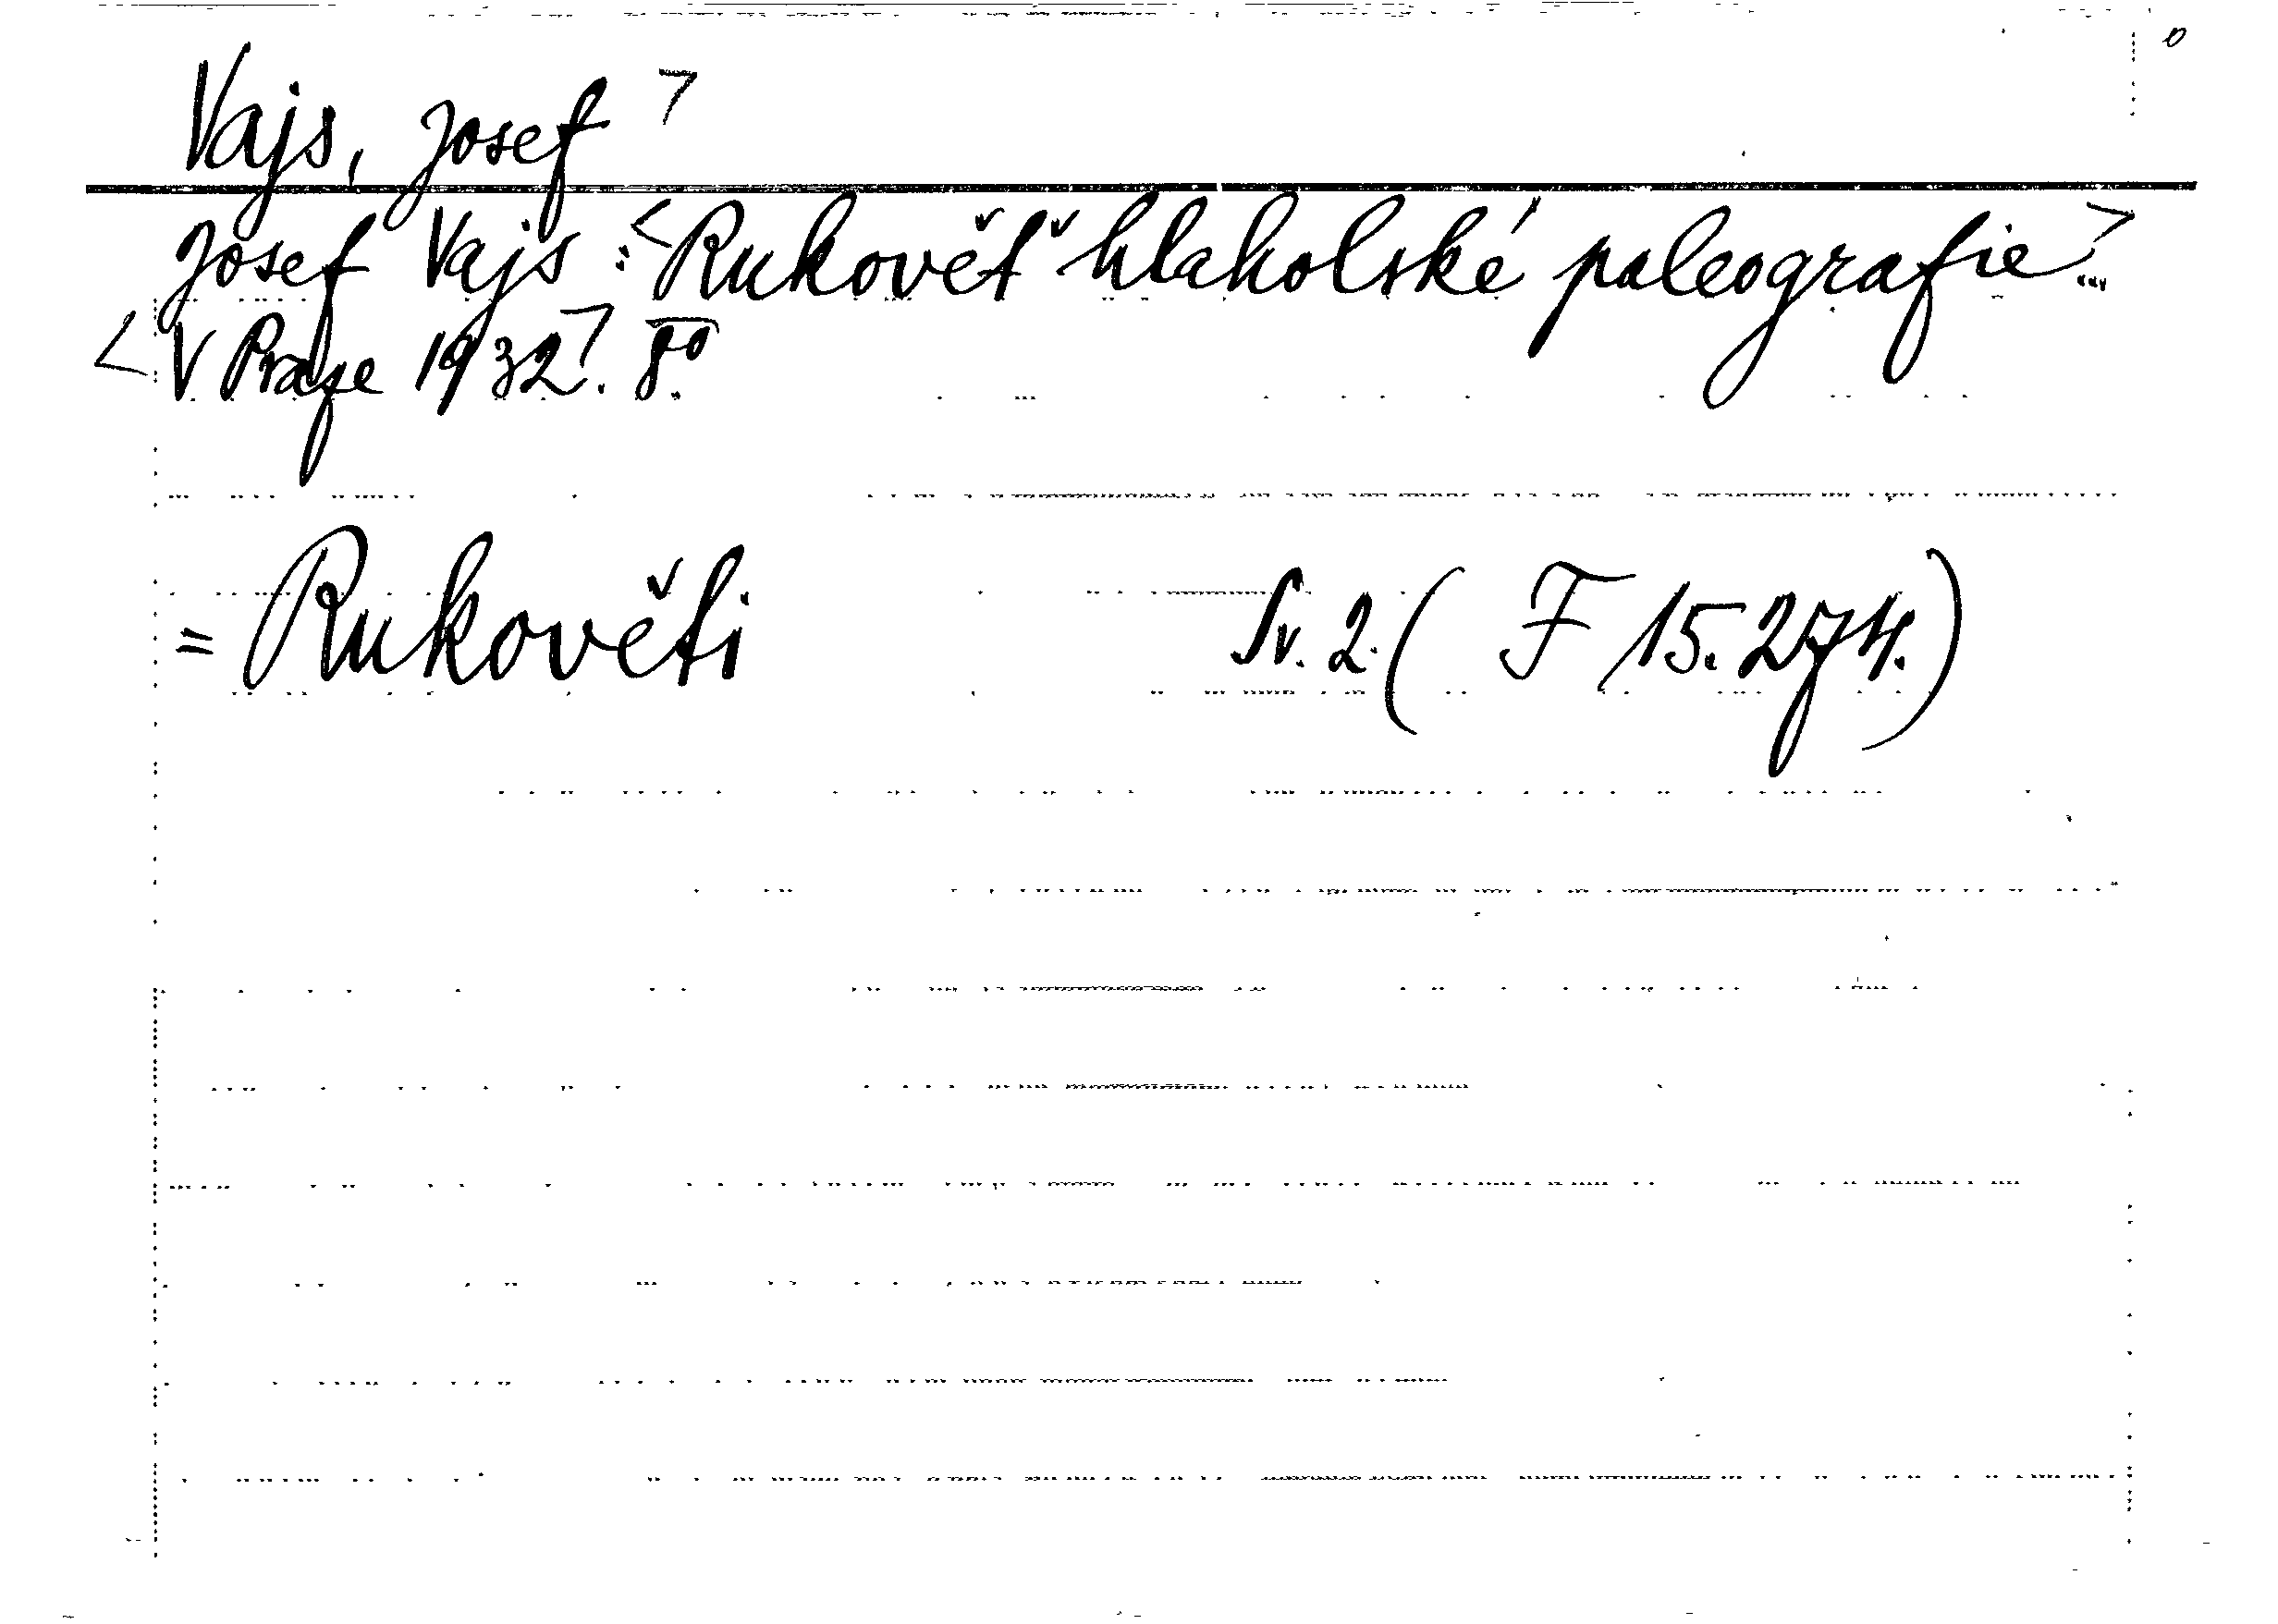 Vajs, Josef ⁊
Josef Vajs: <Rukověť hlaholské paleografie> ...
<V Praze 1932>. 8º.
= Rukověti Sv. 2. (F 15.274.)